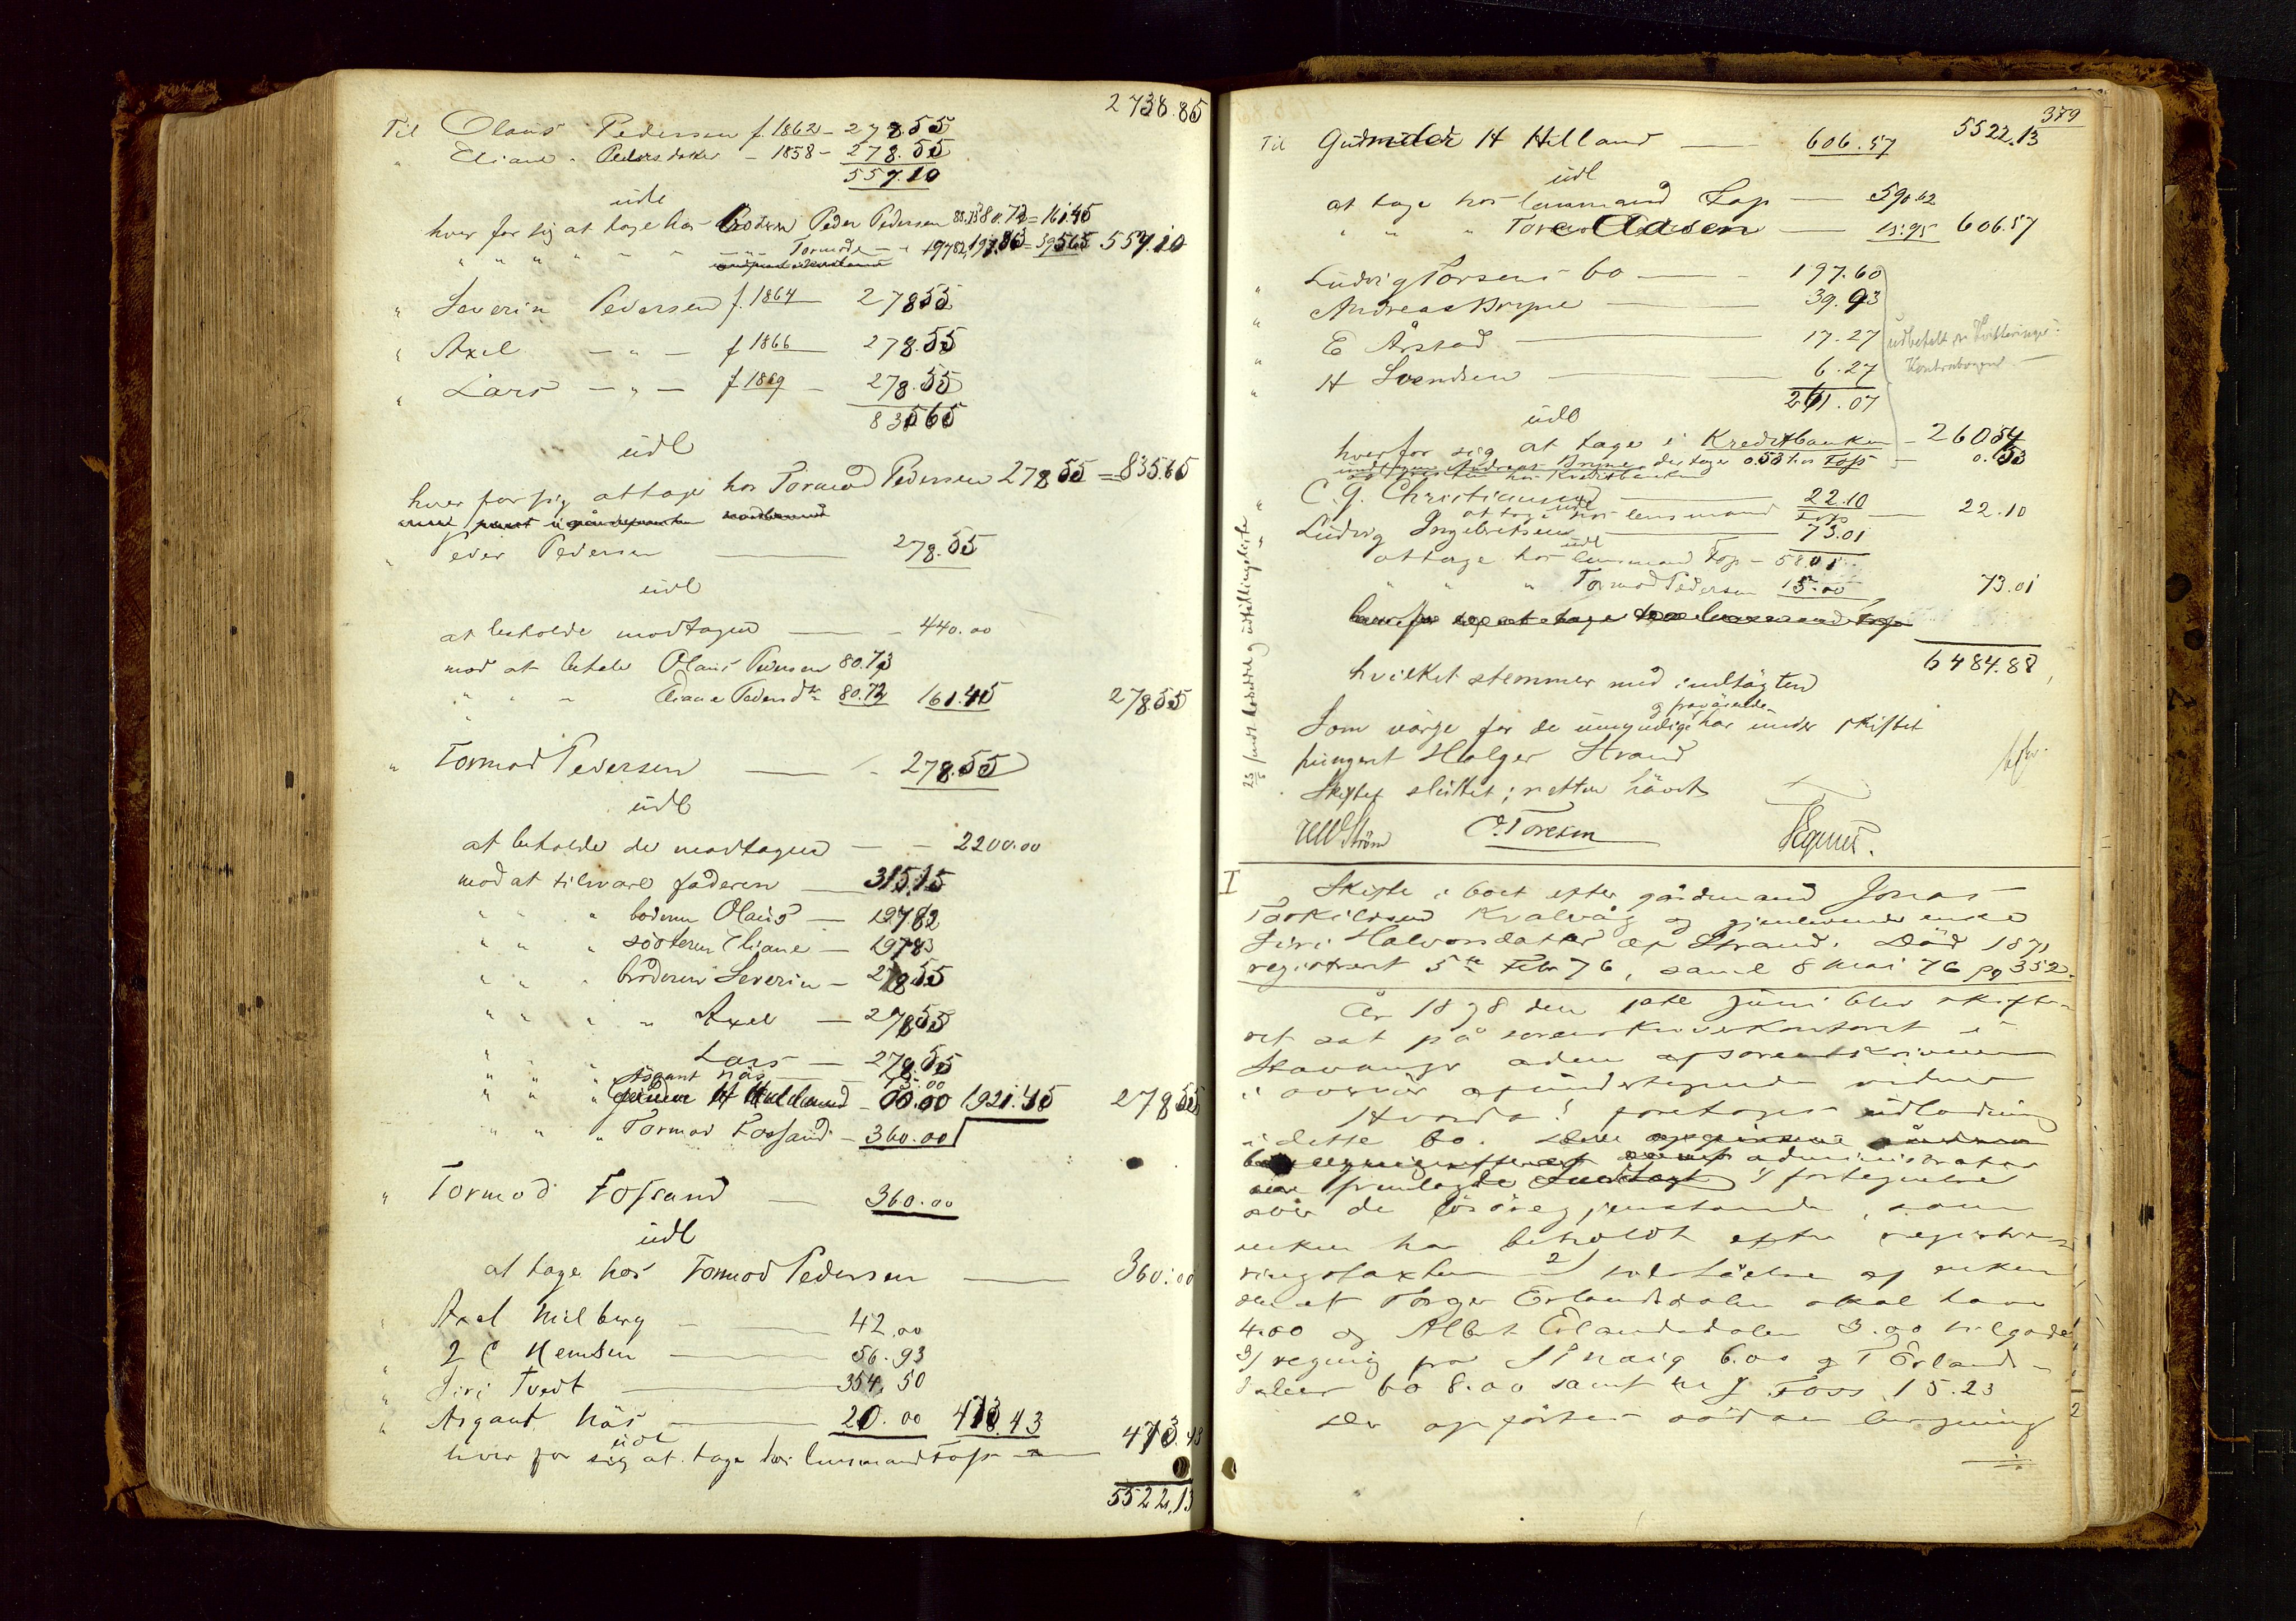 2738.85
Til Olaus Pedersen f. 1862 – 278.55
" Eliane Pedersdatter – 1858 – 278.55
557.10
udl
hver for sig at tage hos broderen Peder Pedersen 80.73 80.72 = 161.45
" " " " " " Tormod – " 197.82, 197.83 = 395.65 557.10
" Severin Pedersen f. 1864 278.55
" Axel – " – f 1866 278.55
" Lars – " – f. 1869 – 278.55
835.65
udl
hver for sig at tage hos Tormod Pedersen 278.55 = 835.65
" Peder Pedersen 278.55
udl
at beholde modtagne – 440.00
mod at betale Olaus Pedersen 80.73
" " – Eliane Pedersdtr 80.72 161.45 278.55
" Tormod Pedersen – 278.55
udl
at beholde de modtagne – – 2200.00
mod at tilsvare faderen – 315.15
" " " broderen Olaus – 197.82
" " " søsteren Eliane – 197.83
" " " broderen Severin – 278.55
" " " " Axel – 278.55
" " " Lars – 278.55
" " " Asgaut Näs 15.00
" " " 1921.45 278.55
" " " Tormod Fossand – 360.00
" Tormod Fossand – 360.00
udl
at tage hos Tormod Pedersen – 360.00
" Axel Nielberg – 42.00
" 56.93
" Siri Tvedt – 354.50
" Asgaut Näs – 20.00 473.43
udl
hver for sig at tage hos lensmand Foss – 473.43
5522.13
379
5522.13
Til Gudmeder H Helland – 606.57
udl
at tage hos lensmand Fos – 590.62
" " " – 15.95 606.57
" Ludvig Torsens bo – 197.60
" Andreas Bryne – 39.93
" E Årstad – 17.27
" H Svendsen – 6.27
udbetalt, se Kvitteringer
Kontrabogen
261.07
udl
hver for sig at tage i Kreditbanken – 260.54
undtagen Andreas Bryne der tager 0.53 hos Foss – 0.53
" C. G. Christiansen – 22.10
udl
at tage hos lensmand Foss – 22.10
" Ludvig Ingebretsen – 73.01
udl
at tage hos lensmand Fos – 58.01
" " " Tormod Pedersen 15.00 73.01
6484.88
hvilket stemmer med indtägten
Som värge for de umyndige og fraværende har under skiftet
fungert Holger Strand
Skiftet sluttet; retten hävet
Strøm O. Toresen
I
Skifte i boet efter gårdmand Jonas
Torkildsen Kvalvåg og gjenlevende enke
Siri Halvorsdatter af Strand. Död 1871
registrert 5te Febr 76, saml 8 Mai 76 pg 352.
År 1878 den 1ste Juni blev skifte-
ret sat på sorenskriverkontoret i
Stavanger af sorenskriveren
i overvär af undertegnede vidner
Hvorda! foretoges udlodning
i dette bo. administrator
fremlagde 1/ fortegnelse
over de lösöregjenstande, som
enken har beholdt efter registre-
ringstaxten 2/ tilståelse af enken
om at Torger Erlandsdalen skal have
4.00 og Albert Erlandsdalen 3.90 tilgode
3/ regning fra 6.00 og T Erlands-
dalens bo 8.00 samt Foss 15.23
Der opførtes sådan beregning